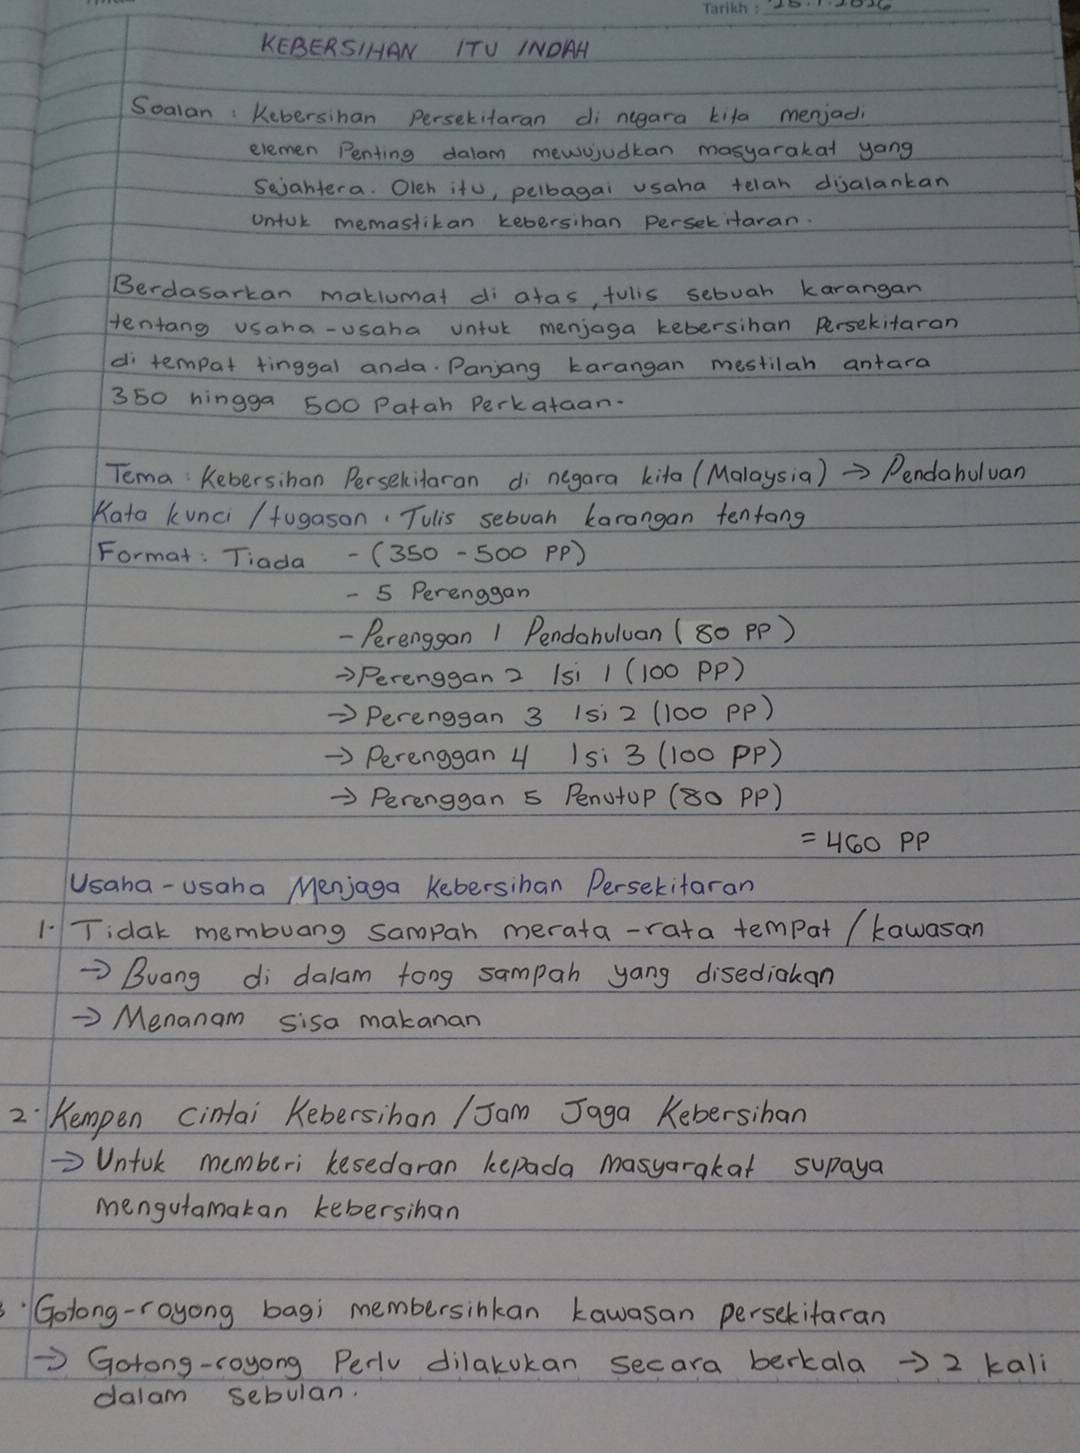 Tarikh :
KEBERSIHAN ITU INDAH
Soalan : Kebersihan Persekitaran di negara kita menjadi
elemen Penting dalam mewujudkan masyarakat yang
Sejahtera. Oleh itu, pelbagai usaha telah dijalankan
untuk memastikan kebersihan Persekitaran.
Berdasarkan maklumat di atas, tulis sebuah karangan
tentang usaha-usaha untuk menjaga kebersihan Persekitaran
di tempat tinggal anda. Panjang karangan mestilah antara
350 hingga 500 Patah Perkataan.
Tema : Kebersihan Persekitaran di negara kita (Malaysia) → Pendahuluan
Kata kunci / tugasan : Tulis sebuah karangan tentang
Format : Tiada - (350 - 500 PP)
- 5 Perenggan
- Perenggan 1 Pendahuluan (80 PP)
→ Perenggan 2 Isi 1 (100 PP)
→ Perenggan 3 Isi 2 (100 PP)
→ Perenggan 4 Isi 3 (100 PP)
→ Perenggan 5 Penutup (80 PP)
= 460 PP
Usaha-usaha Menjaga Kebersihan Persekitaran
1. Tidak membuang sampah merata-rata tempat / kawasan
→ Buang di dalam tong sampah yang disediakan
→ Menanam sisa makanan
2. Kempen Cintai Kebersihan / Jom Jaga Kebersihan
→ Untuk memberi kesedaran kepada masyarakat supaya
mengutamakan kebersihan
3. Gotong-royong bagi membersihkan kawasan persekitaran
→ Gotong-royong Perlu dilakukan secara berkala → 2 kali
dalam sebulan.